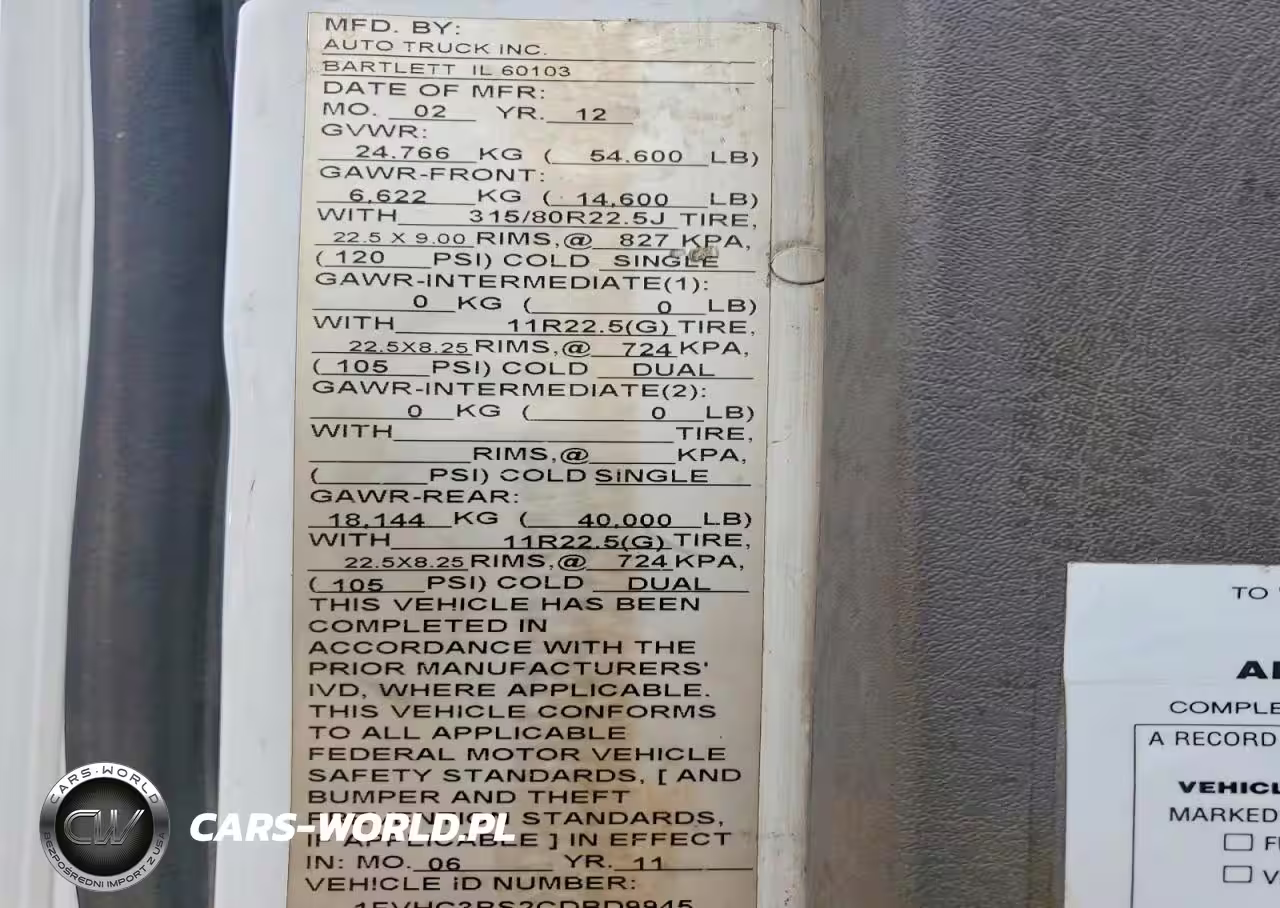 MFD. BY:
AUTO TRUCK INC.
BARTLETT IL 60103
DATE OF MFR:
MO. 02 YR. 12
GVWR:
24.766 KG ( 54.600 LB)
GAWR-FRONT:
6,622 KG ( 14,600 LB)
WITH 315/80R22.5J TIRE,
22.5 X 9.00 RIMS,@ 827 KPA,
( 120 PSI) COLD SINGLE
GAWR-INTERMEDIATE(1):
0 KG ( 0 LB)
WITH 11R22.5(G) TIRE,
22.5X8.25 RIMS,@ 724 KPA,
( 105 PSI) COLD DUAL
GAWR-INTERMEDIATE(2):
0 KG ( 0 LB)
WITH TIRE,
RIMS,@ KPA,
( PSI) COLD SINGLE
GAWR-REAR:
18,144 KG ( 40,000 LB)
WITH 11R22.5(G) TIRE,
22.5X8.25 RIMS,@ 724 KPA,
( 105 PSI) COLD DUAL
THIS VEHICLE HAS BEEN
COMPLETED IN
ACCORDANCE WITH THE
PRIOR MANUFACTURERS'
IVD, WHERE APPLICABLE.
THIS VEHICLE CONFORMS
TO ALL APPLICABLE
FEDERAL MOTOR VEHICLE
SAFETY STANDARDS, [ AND
BUMPER AND THEFT
PREVENTION STANDARDS,
IF APPLICABLE ] IN EFFECT
IN: MO. 06 YR. 11
VEHICLE ID NUMBER:
TO
COMPLE
A RECORD
VEHICL
MARKED
CARS-WORLD
CW
BEZPOŚREDNI IMPORT Z USA
CARS-WORLD.PL